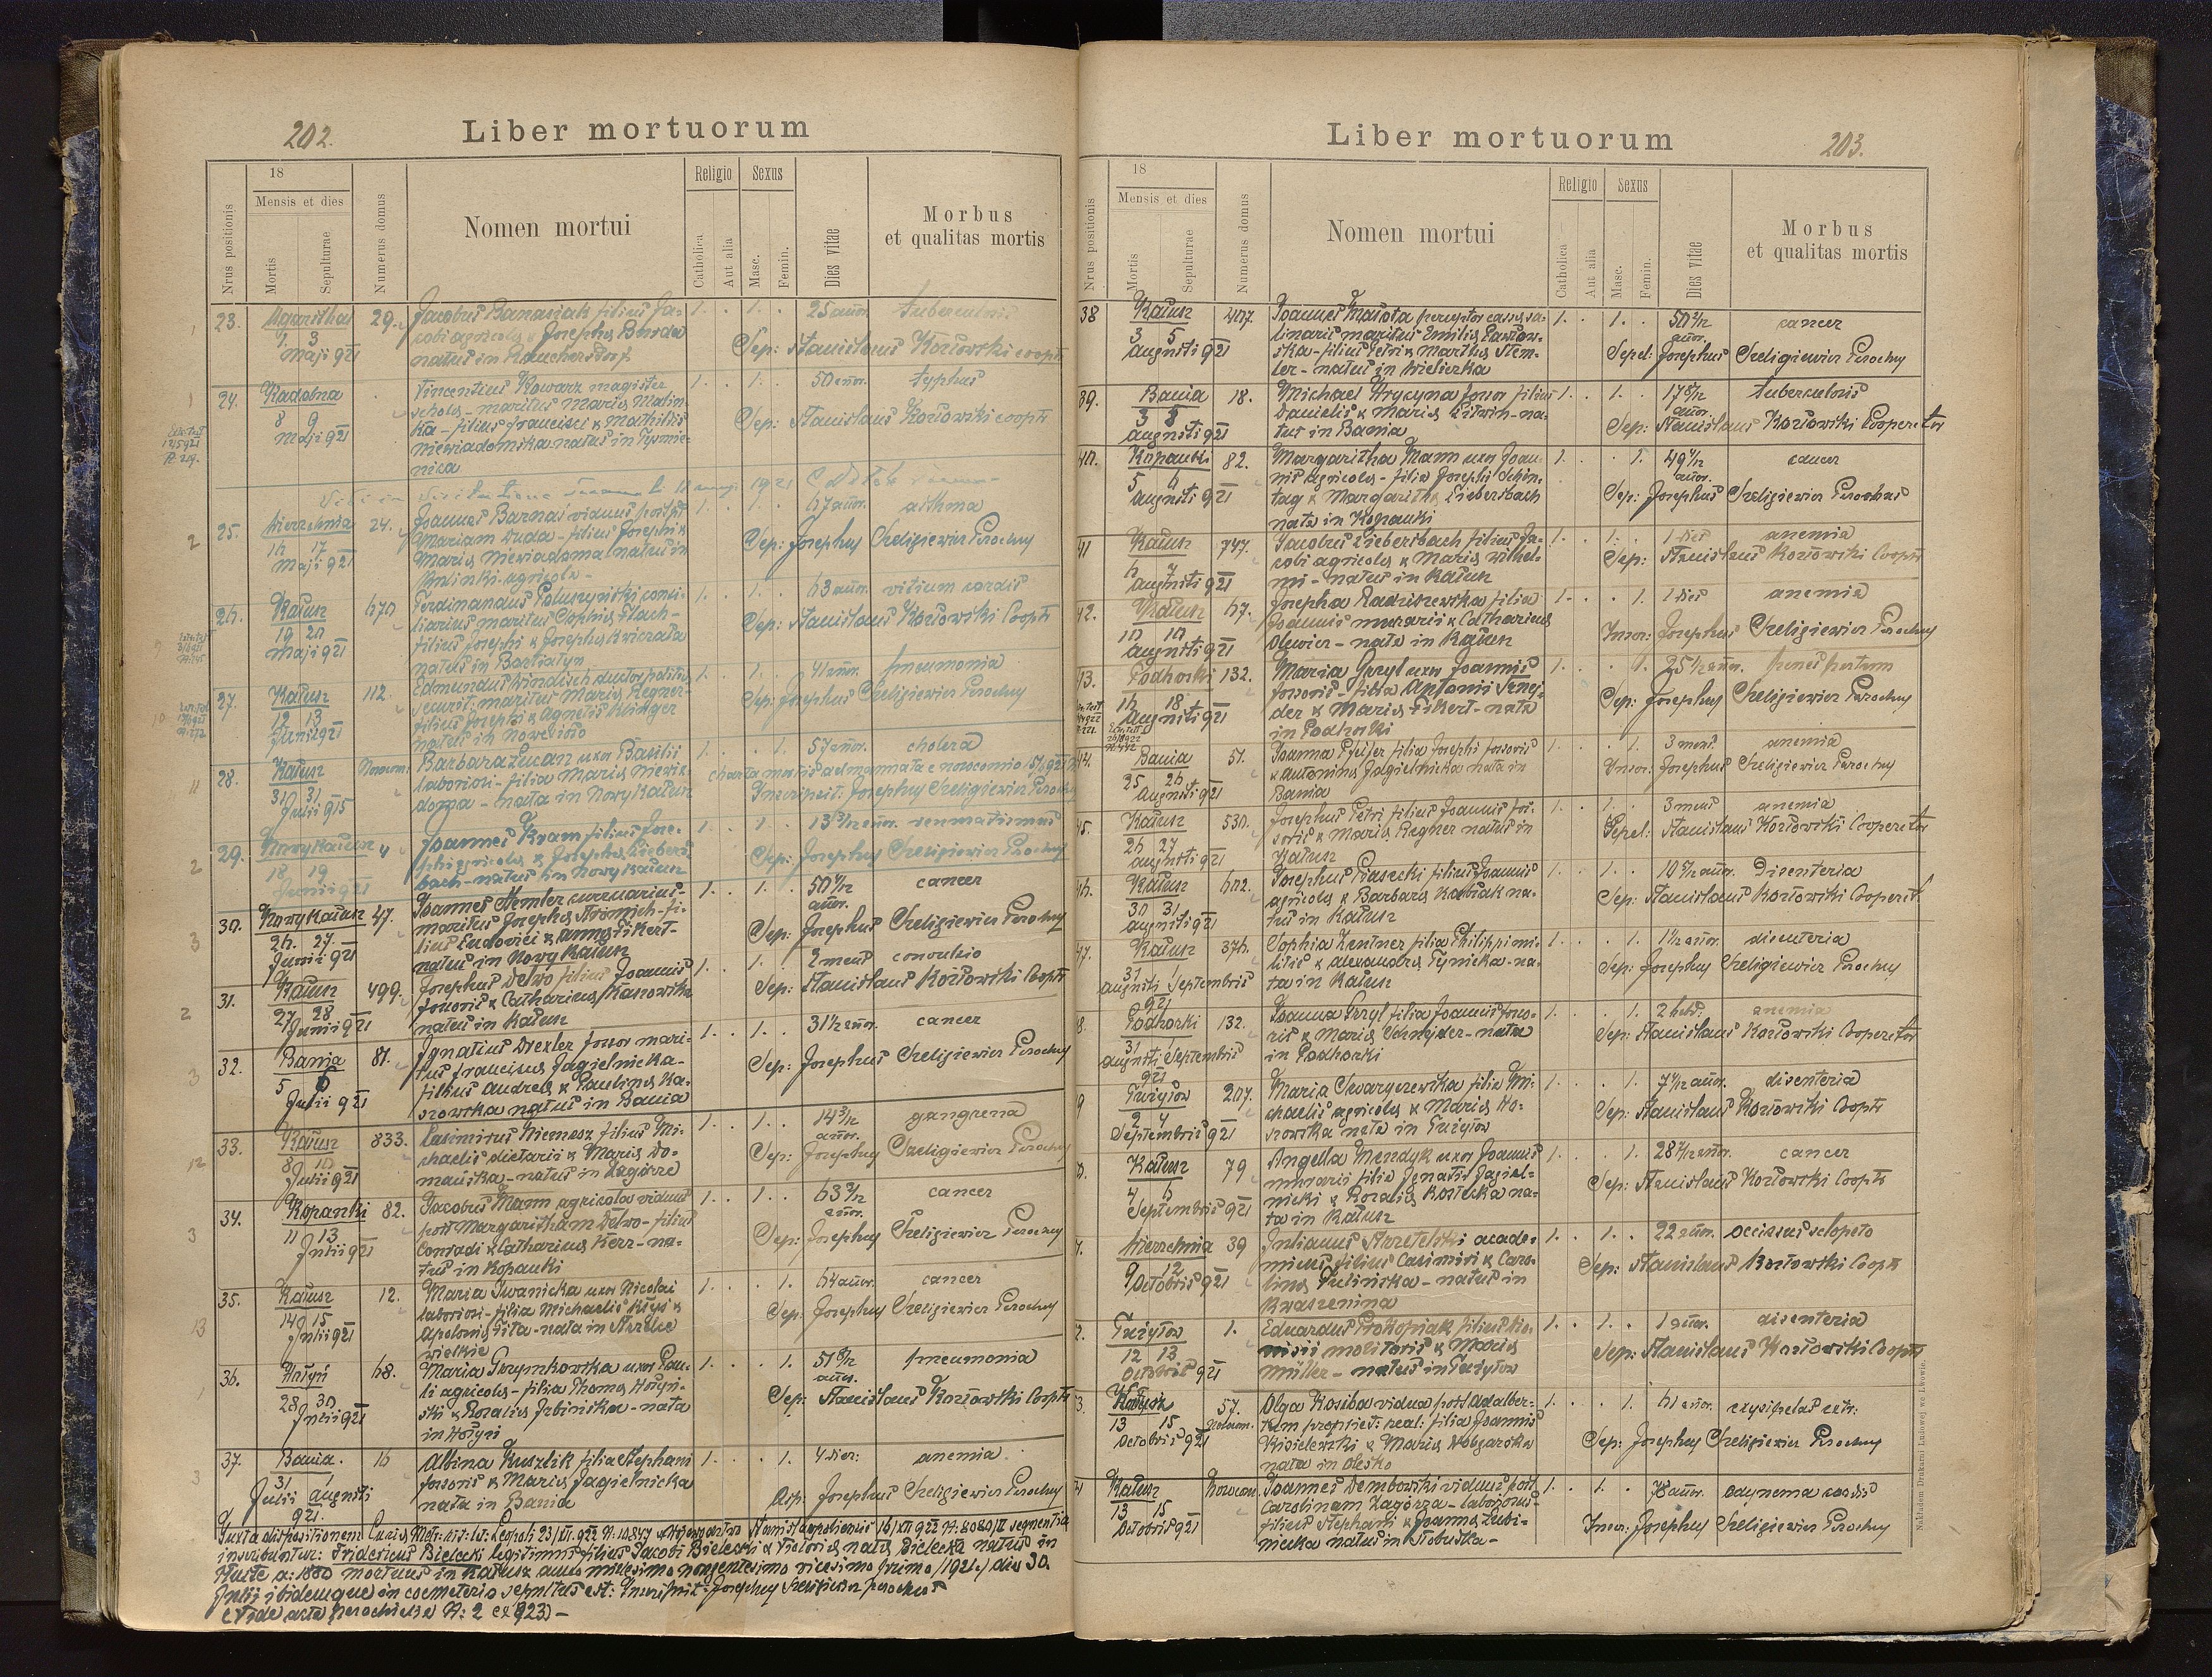 202.
Liber mortuorum
18
Mensis et dies
Religio
Sexus
Nrus positionis
Mortis
Sepulturae
Numerus domus
Nomen mortui
Catholica
Aut alia
Masc.
Femin.
Dies vitae
Morbus
et qualitas mortis
23.
29.
Jacobus Banasiak filius Ja-
cobi agricolae & Josepha Burda
natus in
1. 3
maji 921
1. 1.
25 annor.
Sep: Stanislaus Kozłowski coopr
24.
Kadobna
8 9
maji 921
Vincentius Kowarz magister
scholae - maritus Mariae Malin-
ka - filius Francisci & Mathildis
Niewiadomska natus in Tyśmie-
nica
1. 1.
50 annor.
typhus
Sep: Stanislaus Kozłowski coopr
25.
Wierzchnia
24.
16 17
maji 921
Joannes Barnaś viduus post
Mariam Duda - filius Josephi &
Maria Niewiadoma natus in
agricola -
1. 1.
67 annor.
asthma
Sep: Josephus Szeligiewicz Parochus
26.
Kałusz
670
19 20
maji 921
Ferdinandus Paluszyński consi-
liarius maritus Sophiae Flach -
filius Josephi & Josepha Kwiczała
natus in Bortiatyn
1. 1.
63 annor.
vitium cordis
Sep: Stanislaus Kozłowski Coopr
27.
Kałusz
112.
12 13
Junii 921
Edmundus Windisch ductor politiae
securit. maritus Mariae Regner-
filius Josephi & Agnetis Klinger
natus in Nowesioło
1. 1.
41 annor.
pneumonia
Sep: Josephus Szeligiewicz Parochus
28.
Kałusz
Nosocom.
31 31
Julii 915
Barbara Lucan uxor Basilii
laboriosi - filia Mariae Niewia-
doma - nata in Nowy Kałusz
1. 1.
57 annor.
cholera
Inscripsit: Josephus Szeligiewicz Parochus
29.
Nowy Kałusz
4
18 19
Junii 921
Joannes Kram filius Jose-
phi agricolae & Josepha Liebers-
bach - natus in Nowy Kałusz
1. 1.
13 3/12 annor.
reumatismus
Sep: Josephus Szeligiewicz Parochus
30.
Nowy Kałusz
47.
26. 27.
Junii 921
Joannes Hemler currarius -
maritus Josepha Strömich - fi-
lius Ludovici & Anna Eikert -
natus in Nowy Kałusz
1. 1.
annor.
cancer
Sep: Josephus Szeligiewicz Parochus
31.
Kałusz
499.
27 28
Junii 921
Josephus Delwo filius Joannis
fossoris & Catharinae
natus in Kałusz
1. 1.
2 mens
convulsio
Sep: Stanislaus Kozłowski Coopr
32.
Bania
81.
5 6
Julii 921
Ignatius Drexler fossor mari-
tus Francisca Jagielnicka -
filius Andreae & Paulina Ka-
szowska natus in Bania
1. 1.
31 1/2 annor.
cancer
Sep: Josephus Szeligiewicz Parochus
33.
Kałusz
833.
8 10
Julii 921
Casimirus Niemasz filius Mi-
chaelis dietarii & Maria Do-
mańska - natus in Zagórze
1. 1.
14 3/12
annor.
gangrena
Sep: Josephus Szeligiewicz Parochus
34.
Kopanki
82.
11 13
Julii 921
Jacobus Mann agricola viduus
post Margaritham Delwo - filius
Conradi & Catharina Kerr - na-
tus in Kopanki
1. 1.
annor.
cancer
Sep: Josephus Szeligiewicz Parochus
35.
Kałusz
12.
14 15
Julii 921
Maria Iwanicka uxor Nicolai
laboriosi - filia Michaelis Kłys &
Apolonia Pita - nata in
wielkie
1. 1.
64 annor.
cancer
Sep: Josephus Szeligiewicz Parochus
36.
Hołyń
68.
28 30
Julii 921
Maria Grzymkowska uxor Pau-
li agricolae - filia Thoma Hołyń-
ski & Rozalia Irbinska - nata
in Hołyń
1. 1.
annor.
pneumonia
Sep: Stanislaus Kozłowski Coopr
37.
Bania.
16
31 1
Julii Augusti
921.
Albina Kuszlik filia Stephani
fossoris & Maria Jagielnicka
nata in Bania
1. 1.
4 dier:
anemia
Sep: Josephus Szeligiewicz Parochus
Juxta dispositionem
inscribuntur: Fridericus Bielecki legitimus filius Jacobi Bielecki & Victoria nata Bielecka natus in
a: 1880 mortuus in Kałusz anno millesimo nongentesimo vicesimo primo /1921/ die 30.
Julii ibidemque in coemeterio sepultus est: Inscripsit: Josephus Szeligiewicz parochus
(Vide acta parochialia N: 2 ex 923) -
203.
Liber mortuorum
18
Mensis et dies
Religio
Sexus
Nrus positionis
Mortis
Sepulturae
Numerus domus
Nomen mortui
Catholica
Aut alia
Masc.
Femin.
Dies vitae
Morbus
et qualitas mortis
38
Kałusz
407.
3 5
Augusti 921
Joannes Masota perceptor cassae sa-
linariae maritus Emilia Pawłow-
ska - filius Petri & Martha Stem-
ler - natus in Wieliczka
1. 1.
annor.
cancer
Sepel: Josephus Szeligiewicz Parochus
39.
Bania
18.
3 5
Augusti 921
Michael Hrycyna fossor filius
Danielis & Maria Litwin - na-
tus in Bania
1. 1.
annor.
tuberculosis
Sep: Stanislaus Kozłowski Cooperator
40.
Kopanki
82.
5 6
Augusti 921
Margaritha Mann uxor Joan-
nis agricolae - filia Josephi Schön-
tag & Margaritha Liebersbach
nata in Kopanki
1. 1.
annor.
cancer
Sep: Josephus Szeligiewicz Parochus
41
Kałusz
747.
6 7
Augusti 921
Jacobus Liebersbach filius Ja-
cobi agricolae & Maria Wilhel-
mi - natus in Kałusz
1. 1.
1 diei
anemia
Sep: Stanislaus Kozłowski Coopr
42.
Kałusz
67.
10 10
Augusti 921
Josepha Radziszewska filia
Joannis murarii & Catharina
Olewicz - nata in Kałusz
1. 1.
1 diei
anemia
Inscr: Josephus Szeligiewicz Parochus
43.
Podhorki
132.
16 18
Augusti 921
Maria Gszyl uxor Joannis
fossoris - filia Antonii Sznej-
der & Maria Eikert - nata
in Podhorki
1. 1.
25 1/2 annor.
Sep: Josephus Szeligiewicz Parochus
44.
Bania
51.
25 26
Augusti 921
Joanna Pfeifer filia Josephi fossoris
& Antonina Jagielnicka nata in
Bania
1. 1.
3 mens.
anemia
Inscr: Josephus Szeligiewicz Parochus
45.
Kałusz
530.
26 27
Augusti 921
Josephus Petri filius Joannis fos-
soris & Maria Regner natus in
Kałusz
1. 1.
3 mens
anemia
Sepel: Stanislaus Kozłowski Cooperator
46.
Kałusz
602.
30 31
Augusti 921
Josephus Piasecki filius Joannis
agricolae & Barbara Kabiak na-
tus in Kałusz
1. 1.
annor.
Disenteria
Sep: Stanislaus Kozłowski Cooperat
47.
Kałusz
376.
31 1
Augusti Septembris
921
Sophia Zentner filia Philippi mi-
litis & Alexandra Tynicka - na-
ta in Kałusz
1. 1.
1 1/2 annor.
disenteria
Sep: Josephus Szeligiewicz Parochus
8.
Podhorki
132.
31 1
Augusti Septembris
921
Joanna Gszyl filia Joannis fosso-
ris & Maria Schnejder - nata
in Podhorki
1. 1.
2 hebd.
anemia
Sep: Stanislaus Kozłowski Cooperator
9
Tużyłów
207.
2 4
Septembris 921
Maria Skwaryszewska filia Mi-
chaelis agricolae & Maria Ho-
szowska nata in Tużyłów
1. 1.
annor.
disenteria
Sep: Stanislaus Kozłowski Coopr
0.
Kałusz
79
4 6
Septembris 921
Angella Mendyk uxor Joannis
murarii filia Ignatii Jagiel-
nicki & Rozalia Kostecka na-
ta in Kałusz
1. 1.
annor.
cancer
Sep: Stanislaus Kozłowski Coopr
Wierzchnia
39
9 12
Octobris 921
Julianus Strzetelski acade-
micus filius Casimiri & Caro-
lina Tulinska - natus in
Kwaszenina
1. 1.
22 annor.
occissus sclopeto
Sep: Stanislaus Kozłowski Coopr
2.
Tużyłów
1.
12 13
Octobris 921
Eduardus Prokopiak filius
molitoris & Maria
Müller - natus in Tużyłów
1. 1.
1 annor.
disenteria
Sep: Stanislaus Kozłowski Coopr
3.
57.
Nosocom.
13 15
Octobris 921
Olga Kosiba vidua post Adalber-
tum propriet: real: filia Joannis
Kisielewski & Maria
nata in Olesko
1. 1.
61 annor.
erysipelas
Sep: Josephus Szeligiewicz Parochus
4
Kałusz
Nosocom.
13 15
Octobris 921
Joannes Dembowski viduus post
Carolinam Zagórska - laboriosus -
filius Stephani & Joanna Lubi-
niecka natus in Słobudka -
1. 1.
78 annor.
cordis
Inscr: Josephus Szeligiewicz Parochus
Nakładem Drukarni Ludowej we Lwowie.